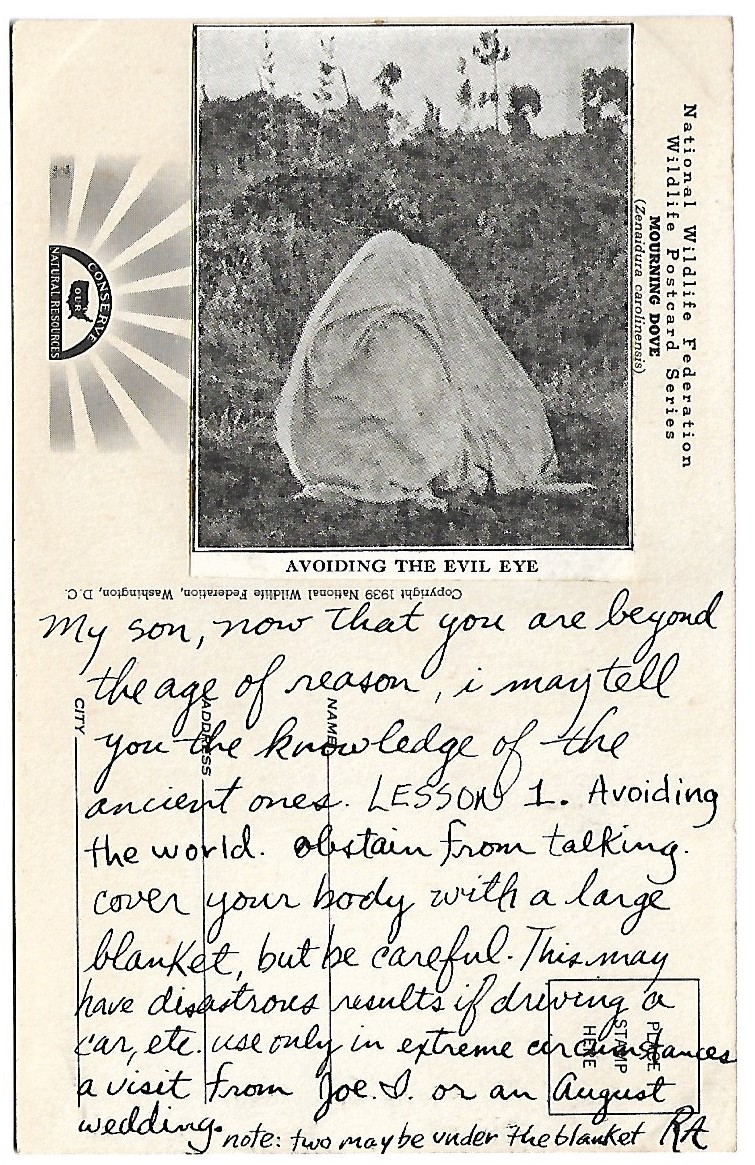 National Wildlife Federation
Wildlife Postcard Series
MOURNING DOVE
(Zenaidura carolinensis)
CONSERVE
OUR
NATURAL RESOURCES
AVOIDING THE EVIL EYE
Copyright 1939 National Wildlife Federation, Washington, D.C.
My son, now that you are beyond
the age of reason, i may tell
you the knowledge of the
ancient ones. LESSON 1. Avoiding
the world. obstain from talking.
cover your body with a large
blanket, but be careful. This may
have disastrous results if driving a
car, etc. use only in extreme circumstances
a visit from Joe. S. or an August
wedding.
note: two may be under the blanket RA
CITY
ADDRESS
NAME
PLACE
STAMP
HERE